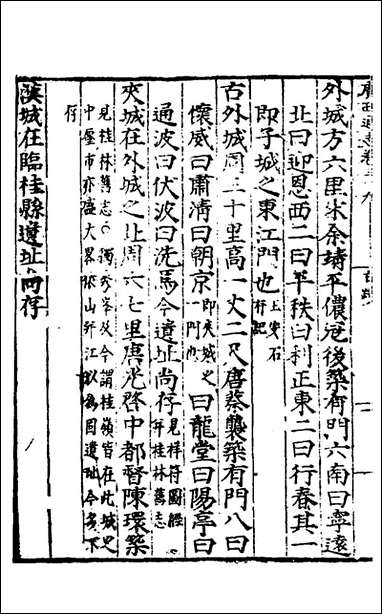 廣西通志卷三十九
外城方六里宋余靖平儂冦後築有門六南曰寧遠
北曰迎恩西二曰平秩曰利正東二曰行春其一
即子城之東江門也
古外城周三十里高一丈二尺唐蔡襲築有門八曰
懷威曰肅清曰朝京即夾城之一門
曰龍堂曰陽亭曰
通波曰伏波曰洗馬今遺址尚存見祥符圖經并桂林舊志
夾城在外城之北周六七里唐光啓中都督陳環築
見桂林舊志
今謂桂嶺皆在此城之
中壓市亦盛大畧
山
江以為固遺址今多不
存
漢城在臨桂縣遺址尚存